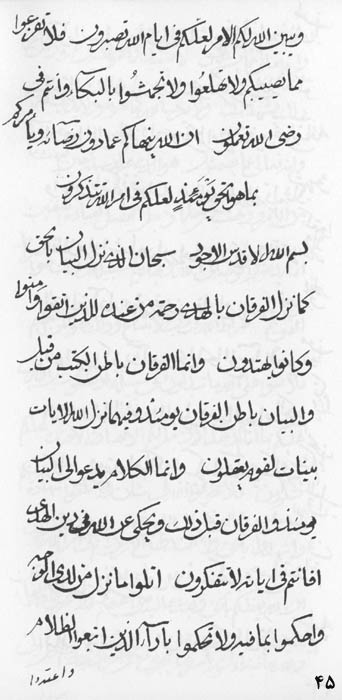 ويبين الله لكم الامر لعلكم في ايام الله تصبرون فلا تفزعوا
مما يصيبكم ولا تهلعوا ولا تجهشوا بالبكاء وانتم في
رضى الله ان الله ينهاكم عما دون رضائه ويأمركم
بما هو عنده لعلكم في امر الله تتذكرون
بسم الله الاقدس الاجود سبحان الذي نزل البيان بالحق
كما نزل الفرقان بالهدى رحمة من عنده للذين اتقوا وامنوا
وكانوا يهتدون وانما الفرقان باطن الكتب من قبل
والبيان باطن الفرقان يومئذ وفيهما نزل الله الايات
بينات لقوم يعقلون وانما الكلام يدعوا الى البيان
يومئذ والفرقان قبل ذلك ويحكي عن الله في دين الهدى
افانتم في اياته لا تتفكرون اتلوا ما نزل من لدى الوجه
واحكموا بما فيه ولا تحكموا بآراء الذين اتبعوا الظلام
واعتدوا
۴۵